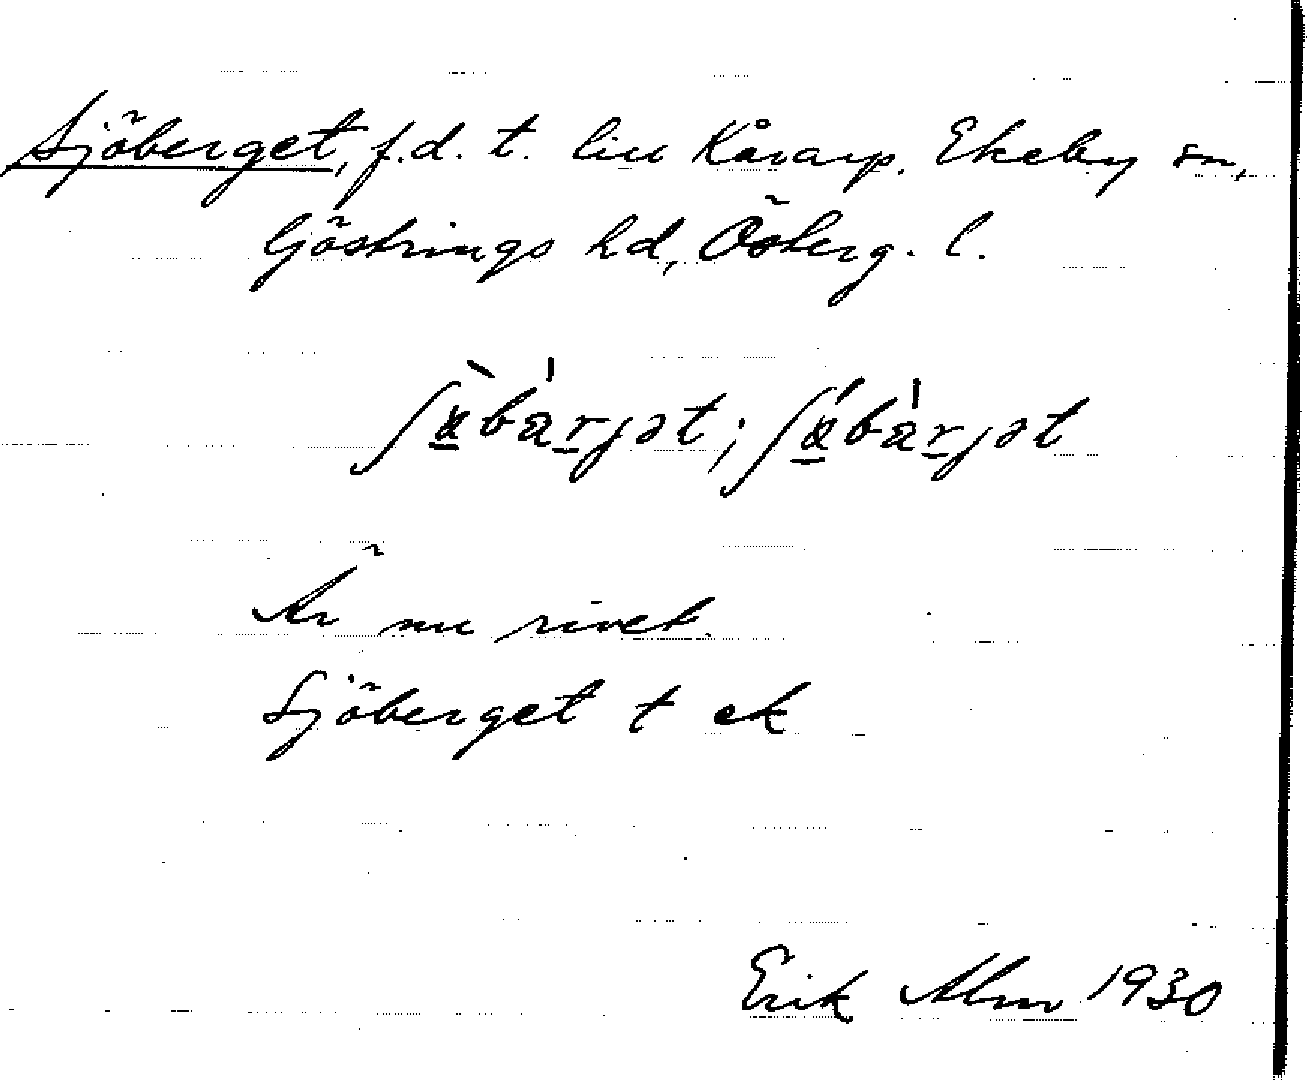 Sjöberget, f.d. t. liu Kårarp, Ekeby sn,
Göstrings hd, Österg. l.
Är nu rivet.
Sjöberget t ek
Erik Alm 1930